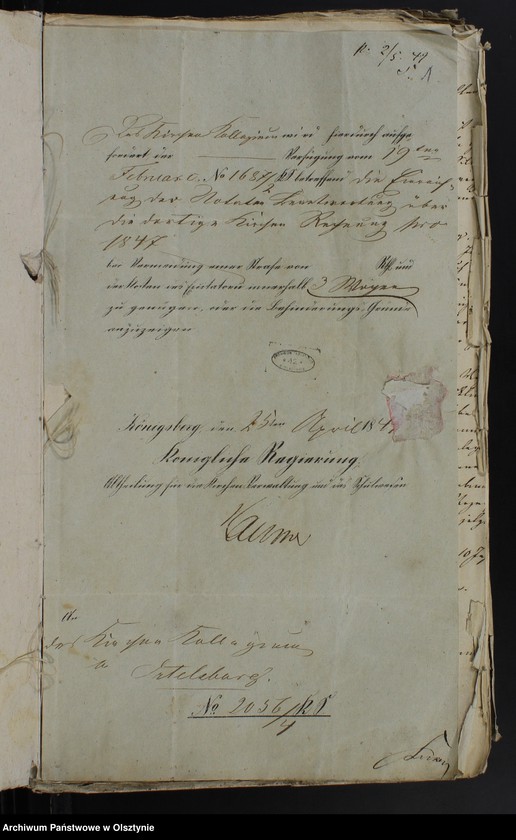 pr. 2/5. 49
Das Kirchen Kollegium wird hierdurch aufge-
fordert der Verfügung vom 19ten
Februar c. No 1687/2 KS betreffend die Einreich-
ung der Notaten Beantwortung über
die dortige Kirchen Rechnung pro
1847
bei Vermeidung einer Strafe von Rthl. und
der Kosten des Excitatorii innerhalb 3 Wochen
zu genügen, oder die Behinderungs-Gründe
anzuzeigen
Königsberg, den 25ten April 184
Königliche Regierung
Abtheilung für die Kirchen-Verwaltung und das Schulwesen
An
das Kirchen Kollegium
zu Ortelsburg.
No 2056/4 KS
Archiwum Państwowe w Olsztynie